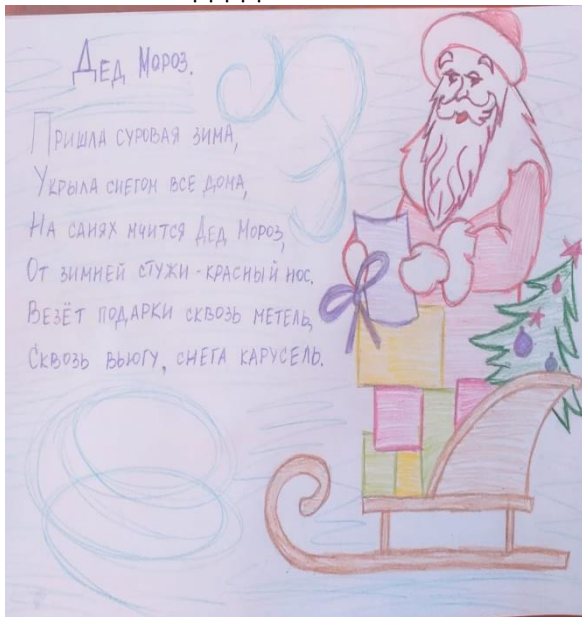 Дед Мороз.
Пришла суровая зима,
Укрыла снегом все дома,
На санях мчится Дед Мороз,
От зимней стужи - красный нос.
Везёт подарки сквозь метель,
Сквозь вьюгу, снега карусель.